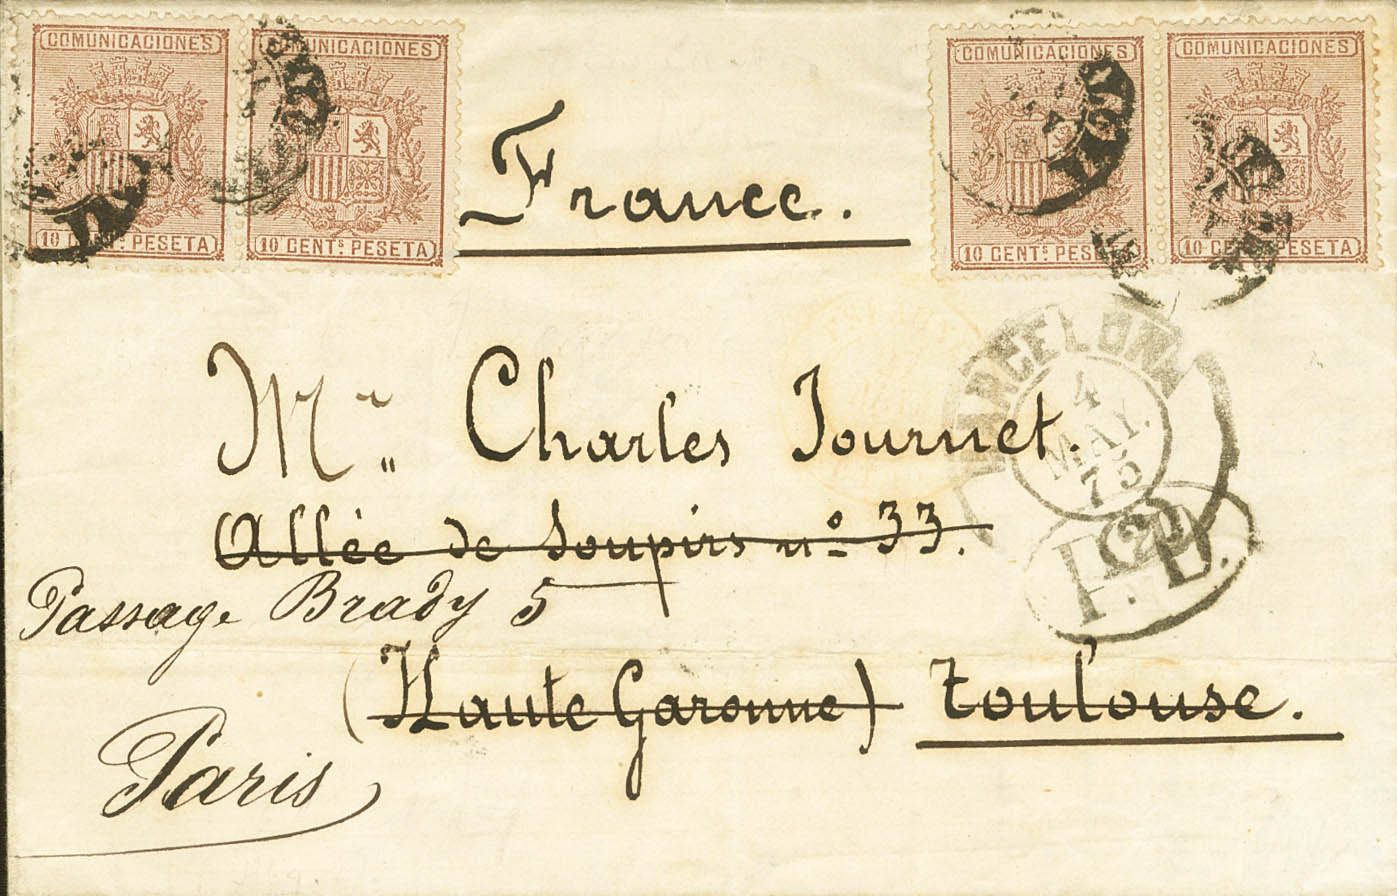 COMUNICACIONES
10 CENTs PESETA
COMUNICACIONES
10 CENTs PESETA
COMUNICACIONES
10 CENTs PESETA
COMUNICACIONES
10 CENTs PESETA
France.
BARCELONA
4
MAY.
75
(2)
P.D.
Mr Charles Journet.
Allée de Soupirs nº 33.
Passage Brady 5
(Haute Garonne) Toulouse.
Paris